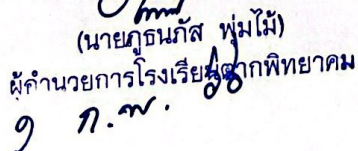 (นายภูธนภัส พุ่มไม้)
ผู้อำนวยการโรงเรียนตากพิทยาคม
ก.พ.